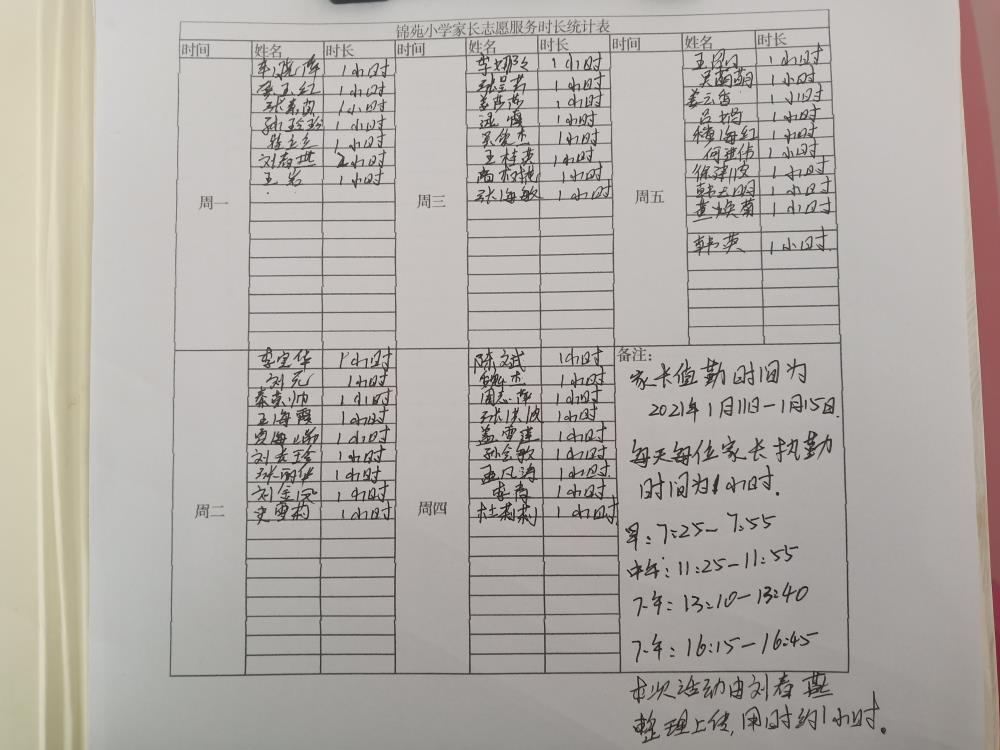 锦苑小学家长志愿服务时长统计表
时间 姓名 时长 时间 姓名 时长 时间 姓名 时长
周一
1小时
1小时
1小时
孙玲玲 1小时
1小时
刘春琪 2小时
王岩 1小时
周三
李娜 1小时
1小时
姜莎莎 1小时
1小时
1小时
王桂英 1小时
1小时
张海敏 1小时
周五
1小时
吴萌萌 1小时
姜云香 1小时
吕娟 1小时
穆海红 1小时
何进伟 1小时
徐建波 1小时
韩大明 1小时
黄焕菊 1小时
韩英 1小时
周二
李宝华 1小时
刘元 1小时
秦克帅 1小时
王海霞 1小时
1小时
刘玉玲 1小时
张丽华 1小时
刘金凤 1小时
史雪莉 1小时
周四
陈文斌 1小时
魏杰 1小时
周志萍 1小时
张洪波 1小时
盖雪莲 1小时
孙会敏 1小时
孟凡涛 1小时
李青 1小时
杜莉莉 1小时
备注:
家长值勤时间为
2021年1月11日-1月15日.
每天每位家长执勤
时间为1小时.
早:7:25-7:55
中午:11:25-11:55
下午:13:10-13:40
下午:16:15-16:45
本次活动由刘春燕
整理上传,用时约1小时。